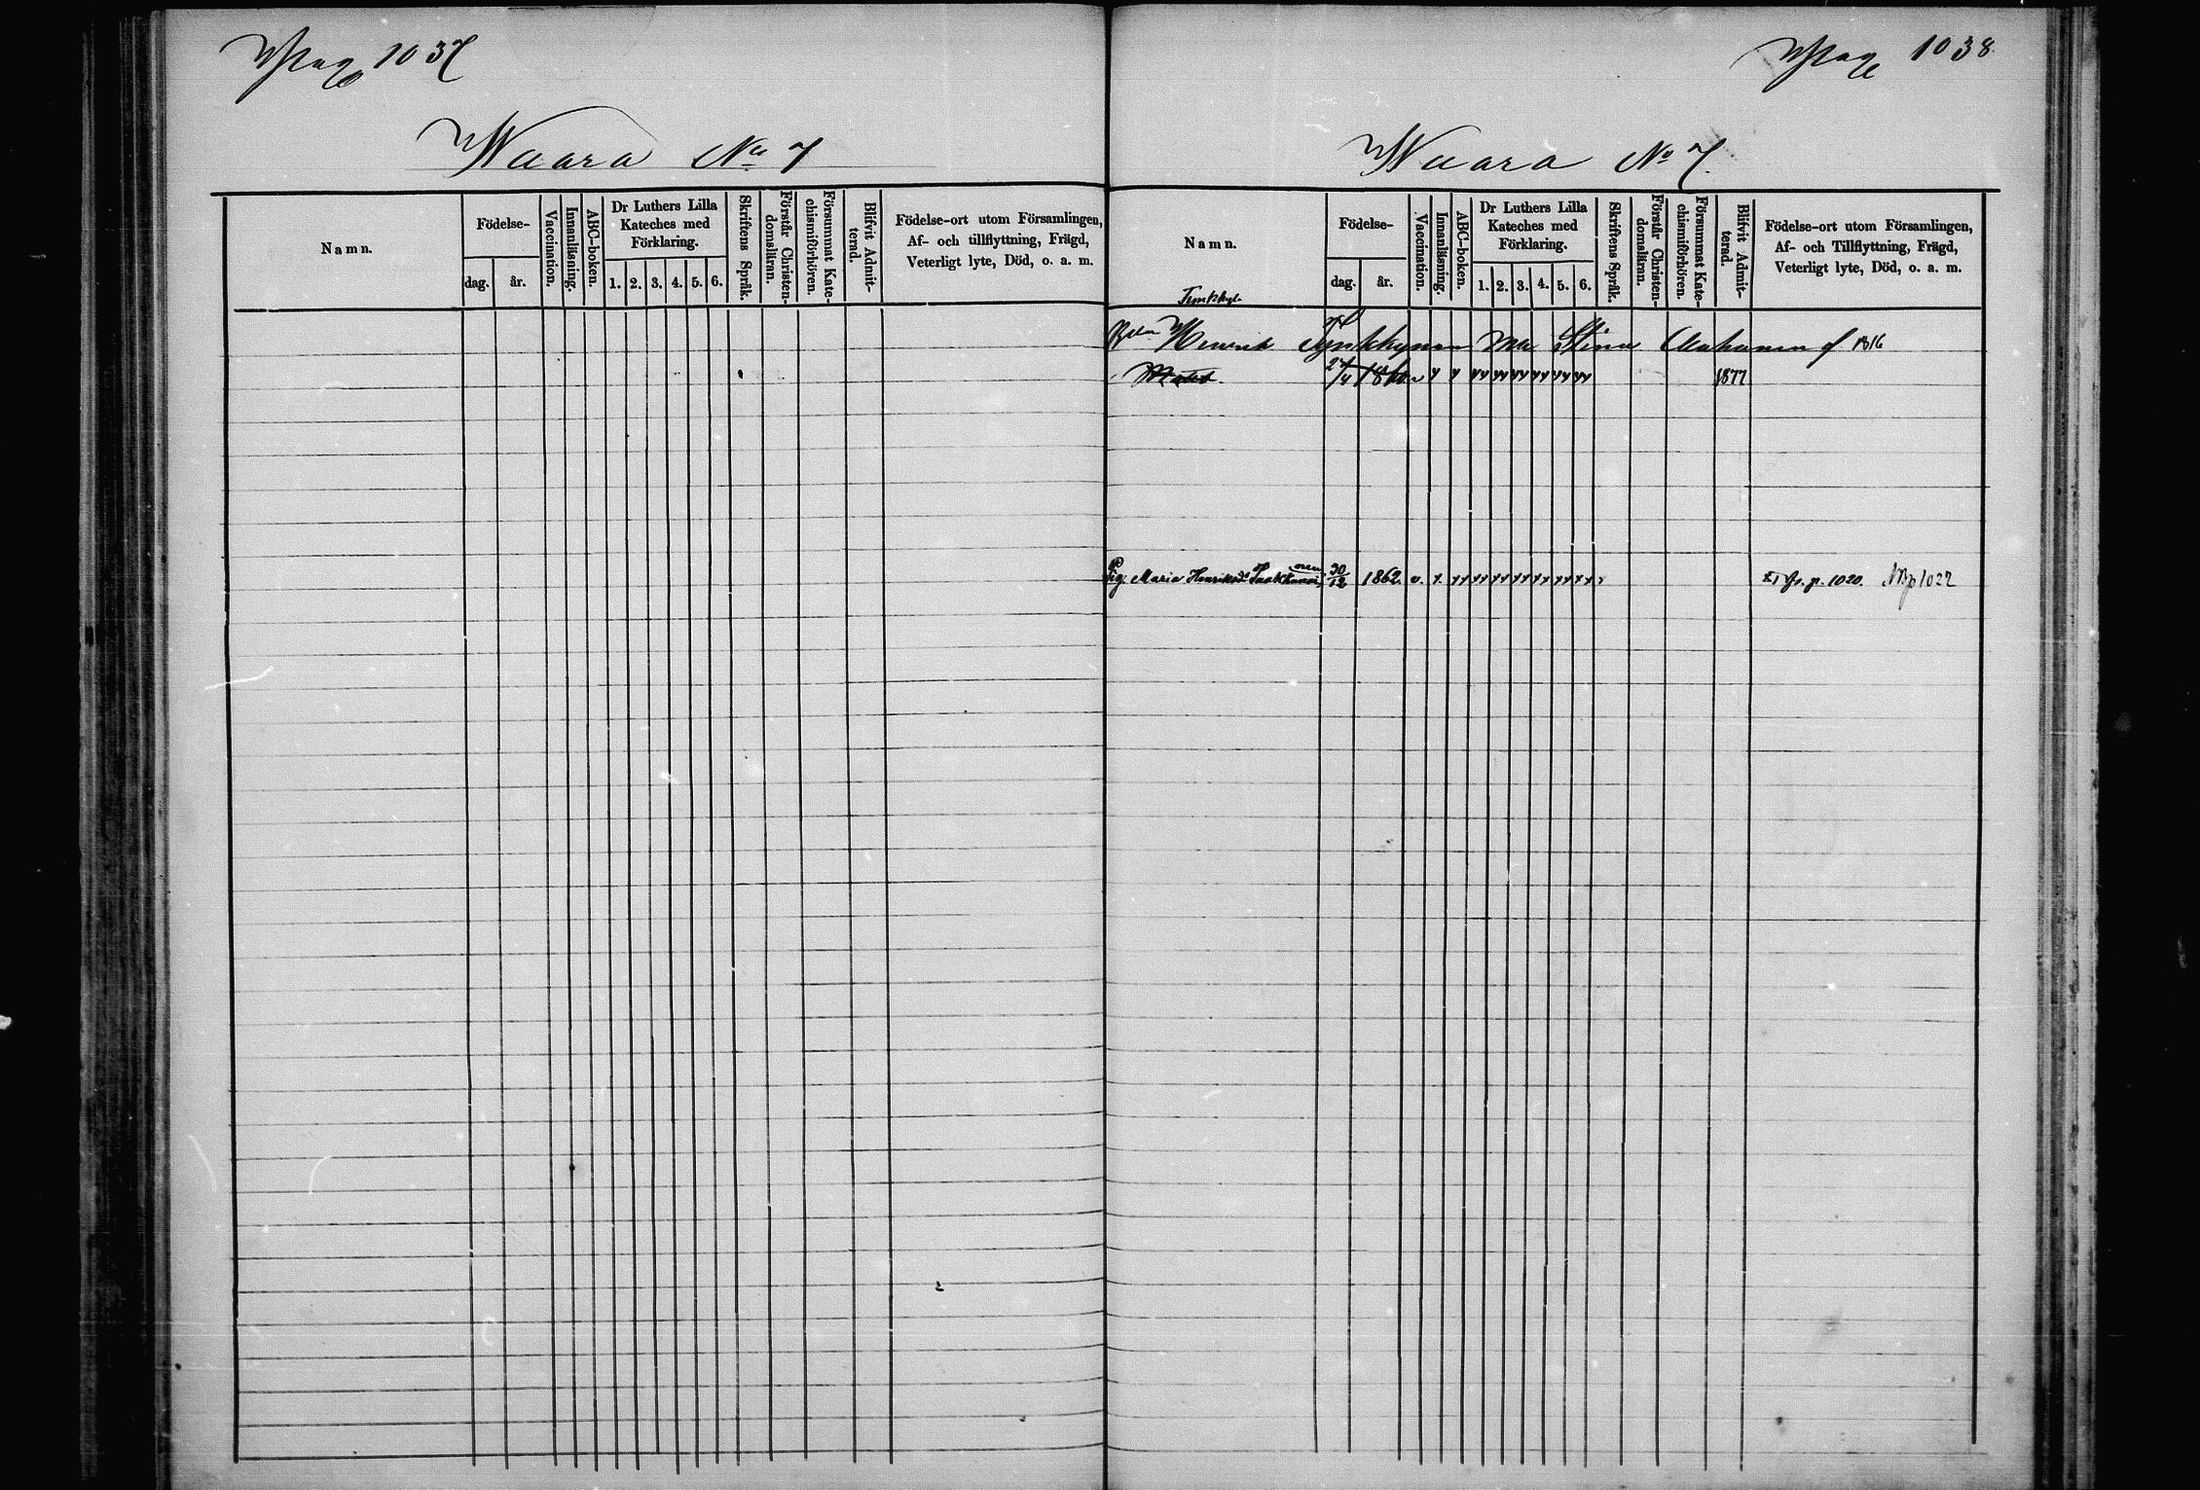 Pag 1037
Waara No 7
Namn.
Födelse-
dag. år.
Vaccination.
Innanläsning.
ABC-boken.
Dr Luthers Lilla
Kateches med
Förklaring.
1. 2. 3. 4. 5. 6.
Skriftens Språk.
Förstår Christen-
domsläran.
Försummat Kate-
chismiförhören.
Blifvit Admit-
terad.
Födelse-ort utom Församlingen,
Af- och tillflyttning, Frägd,
Veterligt lyte, Död, o. a. m.
Pag 1038
Waara No 7.
Namn.
Födelse-
dag. år.
Vaccination.
Innanläsning.
ABC-boken.
Dr Luthers Lilla
Kateches med
Förklaring.
1. 2. 3. 4. 5. 6.
Skriftens Språk.
Förstår Christen-
domsläran.
Försummat Kate-
chismiförhören.
Blifvit Admit-
terad.
Födelse-ort utom Församlingen,
Af- och Tillflyttning, Frägd,
Veterligt lyte, Död, o. a. m.
Henrik Tynkkynen Stina f 1816
27/4 1860 1877
Pig. Maria Henriksdr 30/12 1862 p. 1020. p 1022